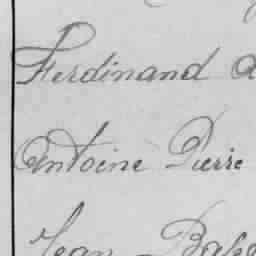 Ferdinand
Antoine Pierre
Jean